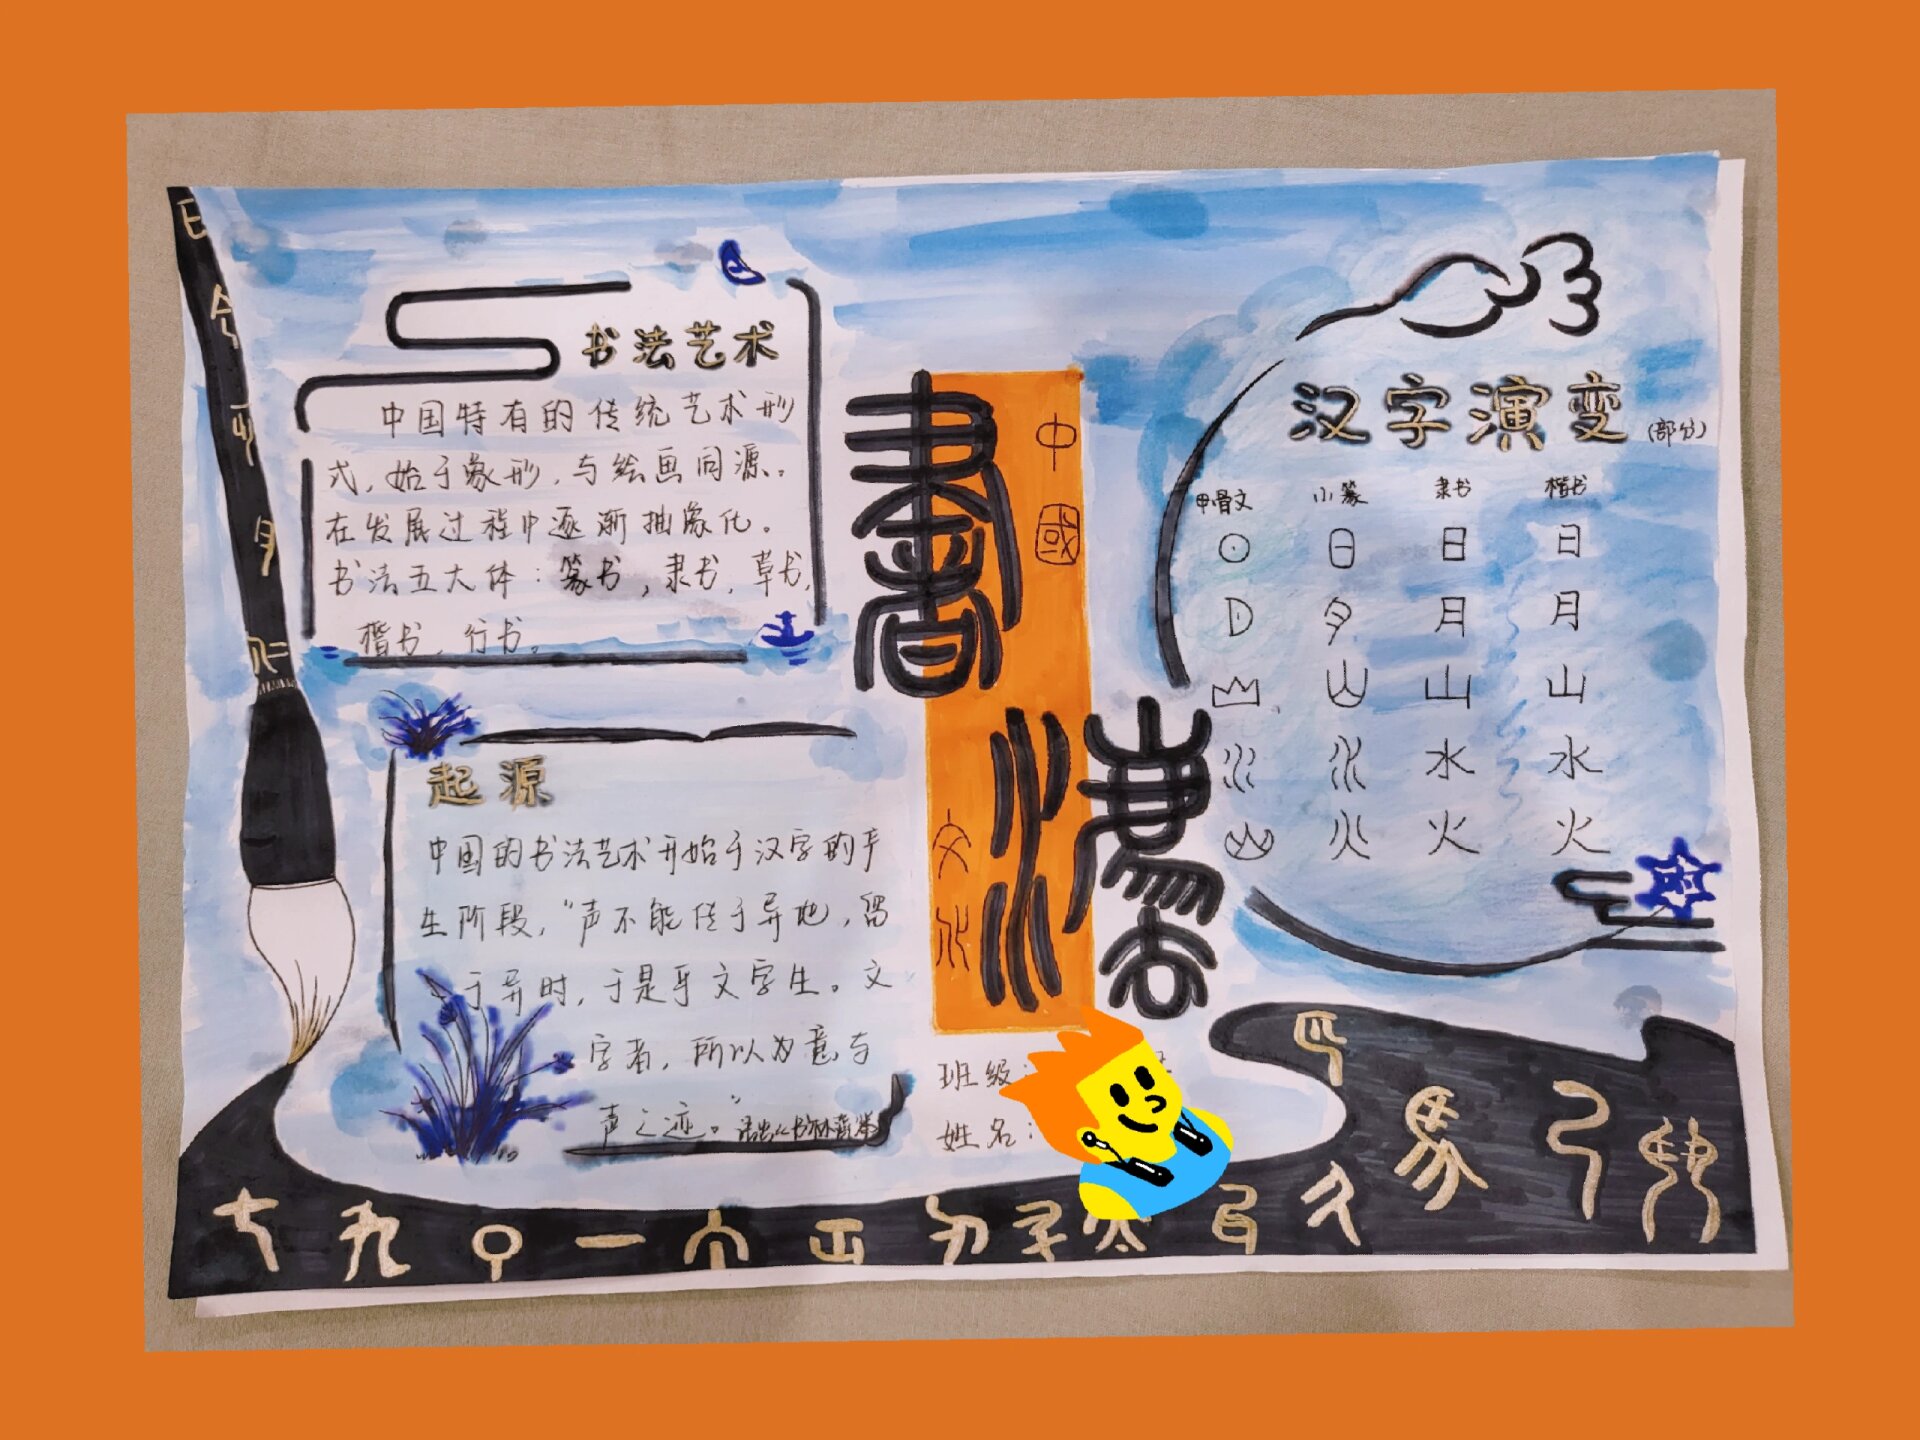 书法艺术
中国特有的传统艺术形
式,始于象形,与绘画同源。
在发展过程中逐渐抽象化。
书法五大体:篆书,隶书,草书,
楷书,行书。
起源
中国的书法艺术开始于汉字的产
生阶段,“声不能传于异地,留
于异时,于是乎文字生。文
字者,所以为意与
声之迹。”
書灋
中國
文化
汉字演变(部分)
甲骨文 小篆 隶书 楷书
日 日 日
月 月
山 山
水 水
火 火
班级:
姓名: